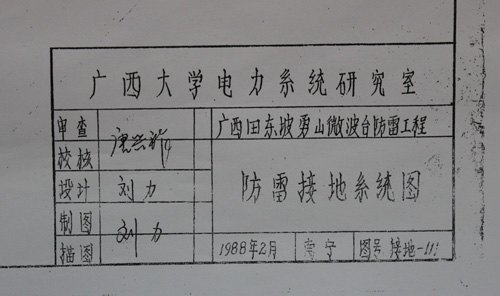 广西大学电力系统研究室
审查
广西田东坡勇山微波台防雷工程
校核
设计
刘力
防雷接地系统图
制图
刘力
描图
1988年2月
南宁
图号
接地-11